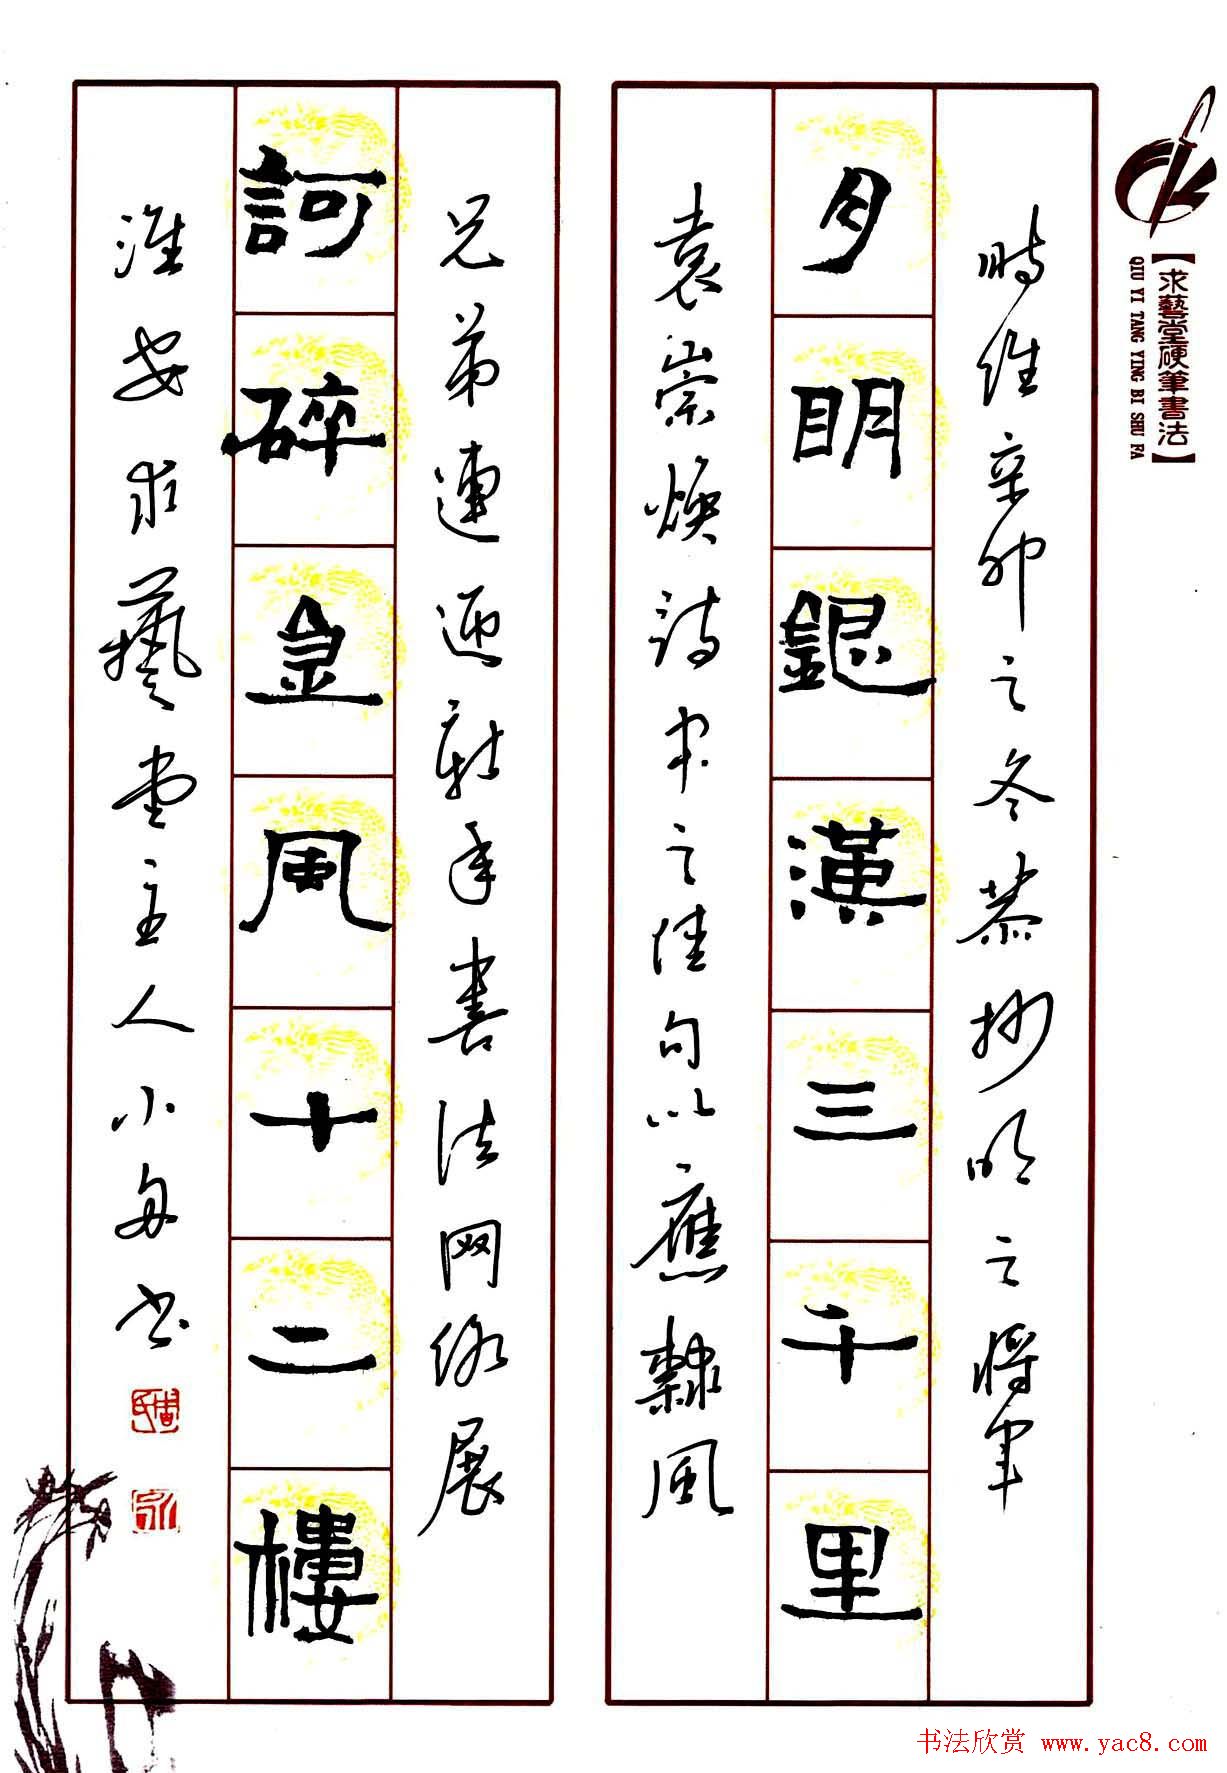 【求藝堂硬筆書法】
QIU YI TANG YING BI SHU FA
時維辛卯之冬恭抄明之將軍
月眀銀漢三千里
袁崇煥詩中之佳句以應隸風
兄弟連迎新年書法网络展
訶碎金風十二樓
淮安求藝堂主人小舟书
周氏
书法欣赏 www.yac8.com